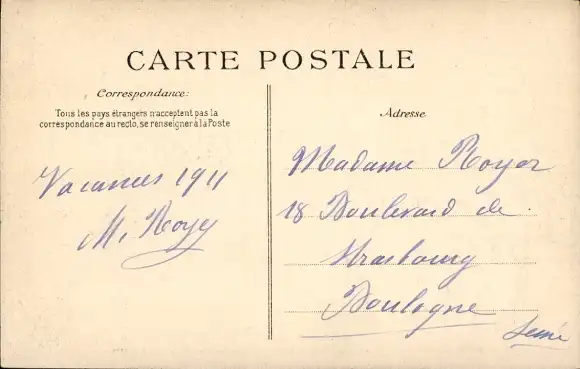 CARTE POSTALE
Correspondance:
Tous les pays étrangers n'acceptent pas la
correspondance au recto, se renseigner à la Poste
Vacances 1911
M. Royer
Adresse
Madame Royer
18 Boulevard de
Strasbourg
Boulogne
Seine